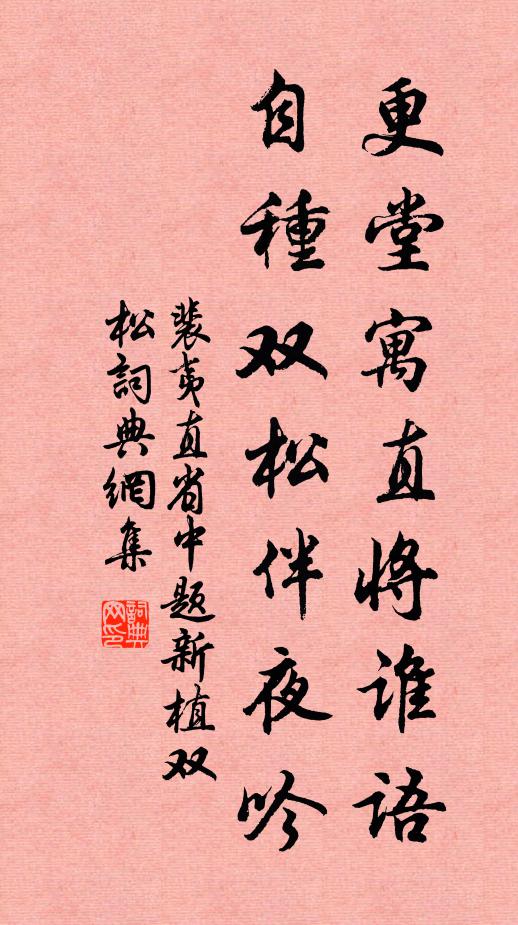 更堂寓直将誰語
自種双松伴夜吟
裴夷直省中題新植双
松詞典網集
詞典网印